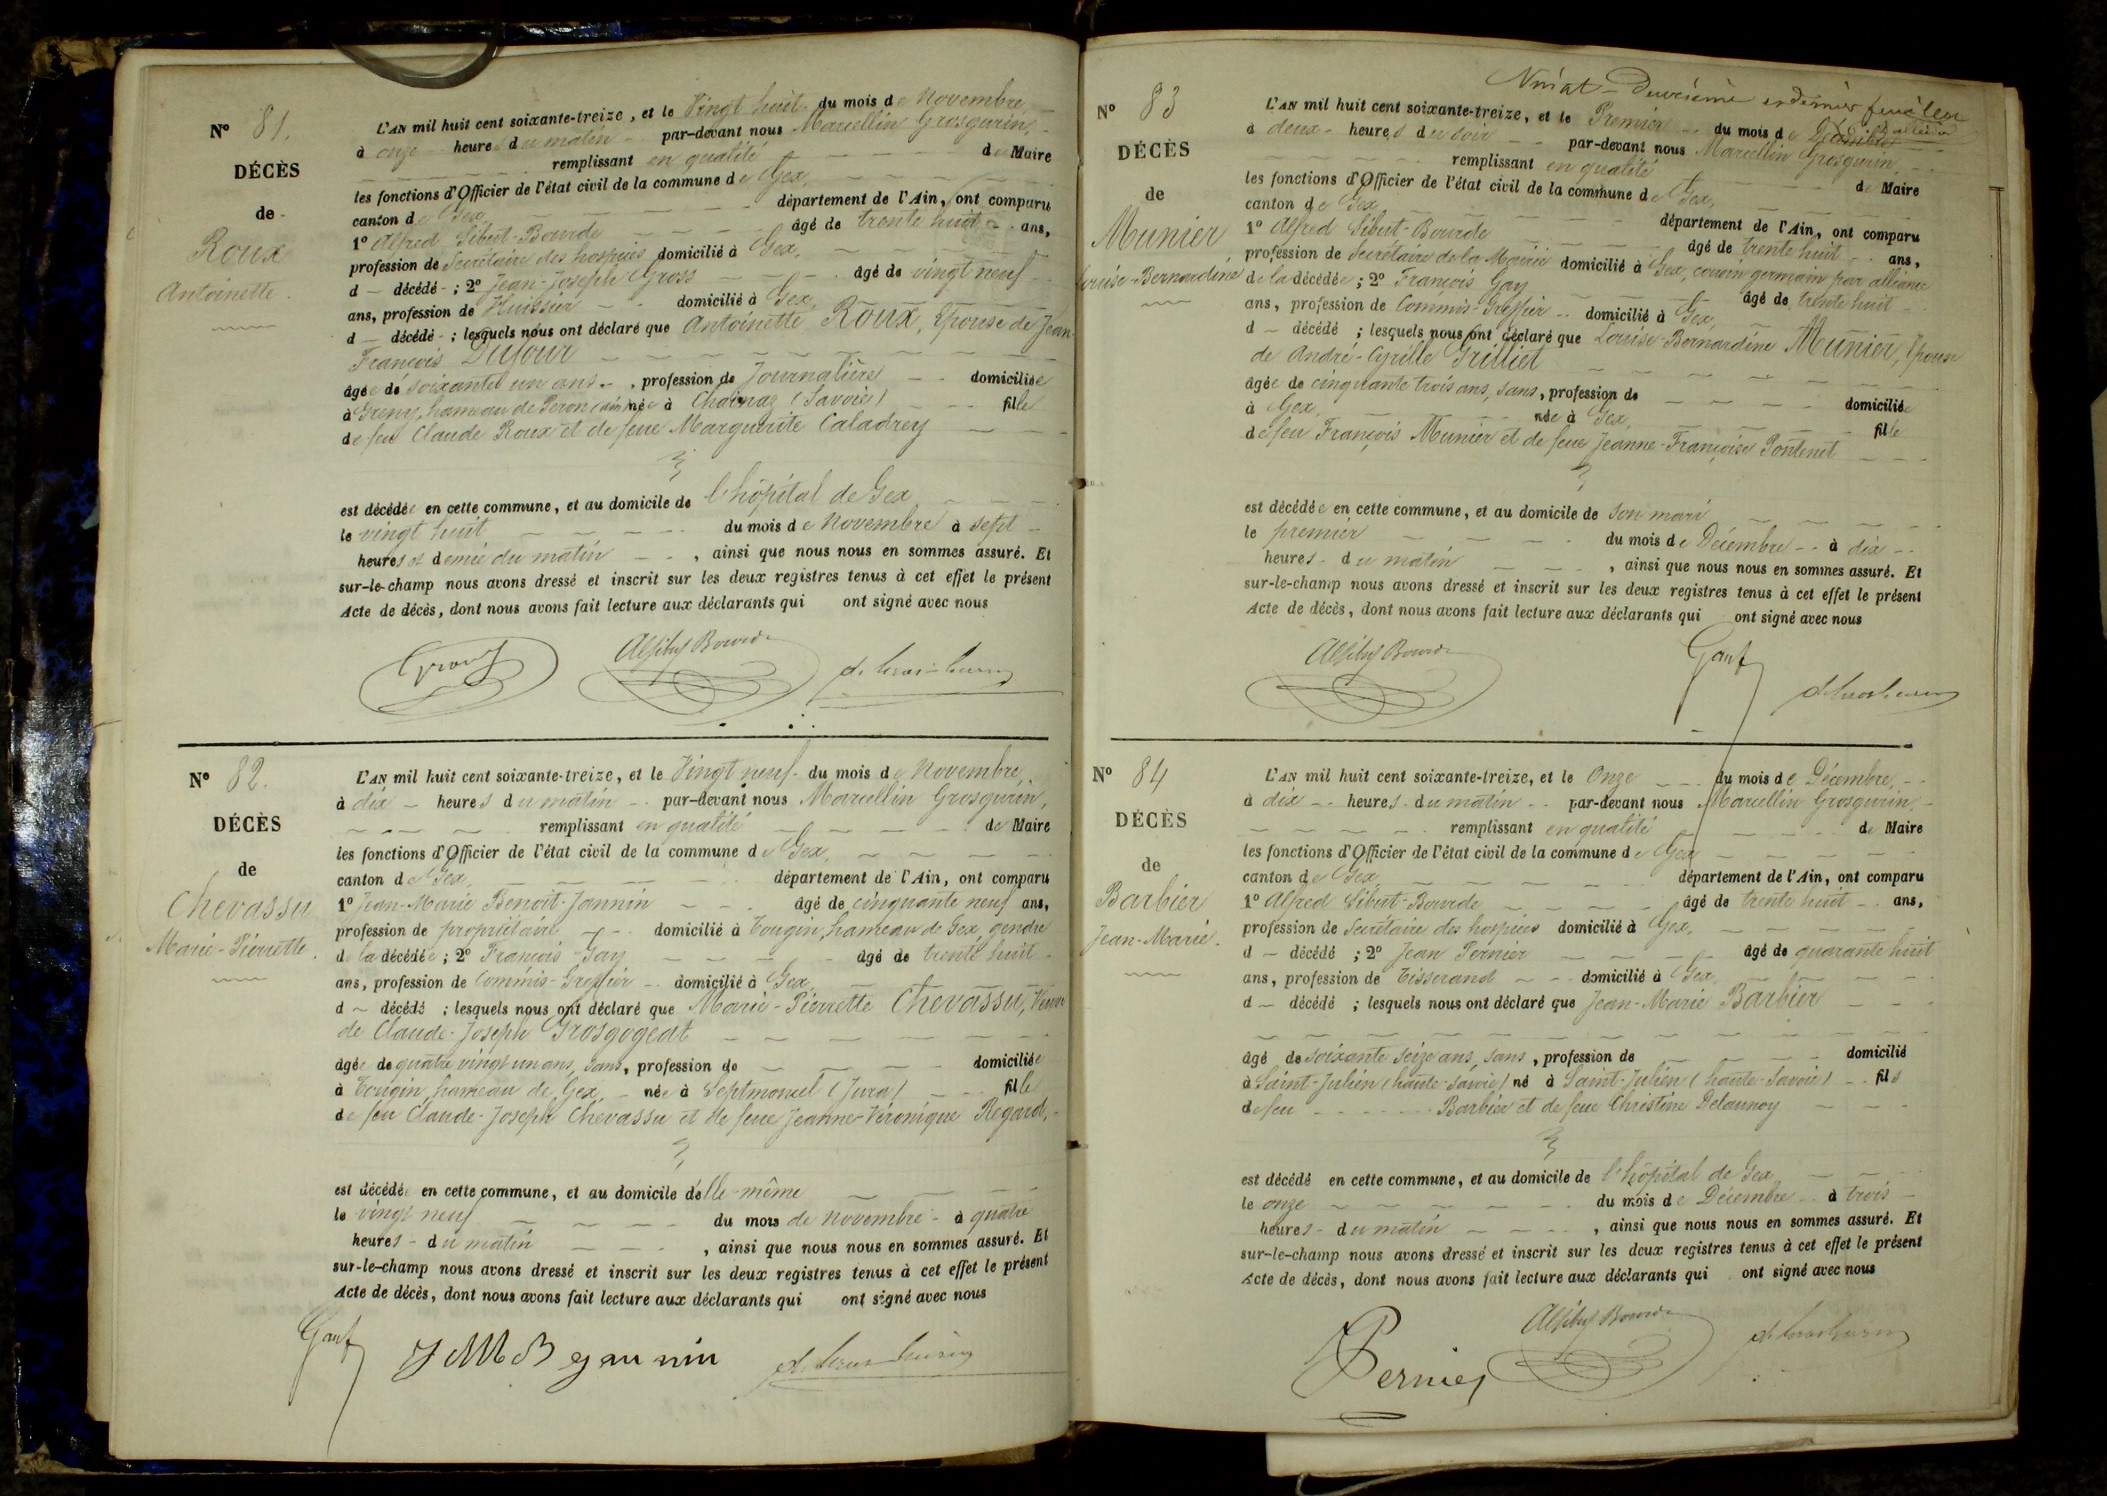 N° 81.
DÉCÈS
de
Roux
Antoinette.
L'AN mil huit cent soixante-treize, et le Vingt huit du mois de Novembre
à onze heures du matin par-devant nous Marcellin Grosgurin,
remplissant en qualité de Maire
les fonctions d'Officier de l'état civil de la commune de Gex,
canton de Gex, département de l'Ain, ont comparu
1° Alfred Sibut-Bourde âgé de trente huit ans,
profession de Secrétaire des hospices domicilié à Gex,
d décédé ; 2° Jean-Joseph Gross âgé de vingt neuf
ans, profession de Huissier domicilié à Gex,
d décédé ; lesquels nous ont déclaré que Antoinette Roux, Epouse de Jean-
François Dufour
âgée de soixante un ans, profession de Journalière domiciliée
à Greny, hameau de Peron (Ain) née à (Savoie) fille
de feu Claude Roux et de feue Marguerite Caladrey
est décédée en cette commune, et au domicile de l'hôpital de Gex
le vingt huit du mois de Novembre à sept
heures et demie du matin, ainsi que nous nous en sommes assuré. Et
sur-le-champ nous avons dressé et inscrit sur les deux registres tenus à cet effet le présent
Acte de décès, dont nous avons fait lecture aux déclarants qui ont signé avec nous
N° 82.
DÉCÈS
de
Chevassu
Marie-Pierrette.
L'AN mil huit cent soixante-treize, et le Vingt neuf du mois de Novembre,
à dix heures du matin par-devant nous Marcellin Grosgurin,
remplissant en qualité de Maire
les fonctions d'Officier de l'état civil de la commune de Gex,
canton de Gex, département de l'Ain, ont comparu
1° Jean-Marie Benoit-Jannin âgé de cinquante neuf ans,
profession de propriétaire domicilié à Tougin, hameau de Gex, gendre
de la décédée ; 2° François Gay âgé de trente huit
ans, profession de Commis-Greffier domicilié à Gex,
d décédé ; lesquels nous ont déclaré que Marie-Pierrette Chevassu, Veuve
de Claude-Joseph Grosgogeat
âgée de quatre vingt un ans, sans, profession de domiciliée
à Tougin, hameau de Gex, née à Septmoncel (Jura) fille
de feu Claude-Joseph Chevassu et de feue Jeanne-Véronique Regard,
est décédée en cette commune, et au domicile d'elle-même
le vingt neuf du mois de Novembre à quatre
heures du matin, ainsi que nous nous en sommes assuré. Et
sur-le-champ nous avons dressé et inscrit sur les deux registres tenus à cet effet le présent
Acte de décès, dont nous avons fait lecture aux déclarants qui ont signé avec nous
Gay
N° 83
DÉCÈS
de
Munier
Louise-Bernardine
Deuxième et dernier feuillet
L'AN mil huit cent soixante-treize, et le Premier du mois de Décembre
à deux heures du soir par-devant nous Marcellin Grosgurin,
remplissant en qualité de Maire
les fonctions d'Officier de l'état civil de la commune de Gex,
canton de Gex, département de l'Ain, ont comparu
1° Alfred Sibut-Bourde âgé de trente huit ans,
profession de Secrétaire de la Mairie domicilié à Gex, cousin germain par alliance
de la décédée ; 2° François Gay âgé de trente huit
ans, profession de Commis-Greffier domicilié à Gex,
d décédé ; lesquels nous ont déclaré que Louise-Bernardine Munier, Epouse
de André-Cyrille Grilliet
âgée de cinquante trois ans, sans, profession de domiciliée
à Gex, née à Gex, fille
de feu François Munier et de feue Jeanne-Françoise Pontenet
est décédée en cette commune, et au domicile de son mari
le premier du mois de Décembre à dix
heures du matin, ainsi que nous nous en sommes assuré. Et
sur-le-champ nous avons dressé et inscrit sur les deux registres tenus à cet effet le présent
Acte de décès, dont nous avons fait lecture aux déclarants qui ont signé avec nous
Gay
N° 84
DÉCÈS
de
Barbier
Jean-Marie.
L'AN mil huit cent soixante-treize, et le Onze du mois de Décembre,
à dix heures du matin par-devant nous Marcellin Grosgurin,
remplissant en qualité de Maire
les fonctions d'Officier de l'état civil de la commune de Gex
canton de Gex, département de l'Ain, ont comparu
1° Alfred Sibut-Bourde âgé de trente huit ans,
profession de Secrétaire des hospices domicilié à Gex,
d décédé ; 2° Jean Pernier âgé de quarante huit
ans, profession de Tisserand domicilié à Gex,
d décédé ; lesquels nous ont déclaré que Jean-Marie Barbier
âgé de soixante seize ans, sans, profession de domicilié
à Saint-Julien (haute-Savoie) né à Saint-Julien (haute-Savoie) fils
de feu Barbier et de feue Christine Delaunoy
est décédé en cette commune, et au domicile de l'hôpital de Gex,
le onze du mois de Décembre à trois
heures du matin, ainsi que nous nous en sommes assuré. Et
sur-le-champ nous avons dressé et inscrit sur les deux registres tenus à cet effet le présent
Acte de décès, dont nous avons fait lecture aux déclarants qui ont signé avec nous
Pernier